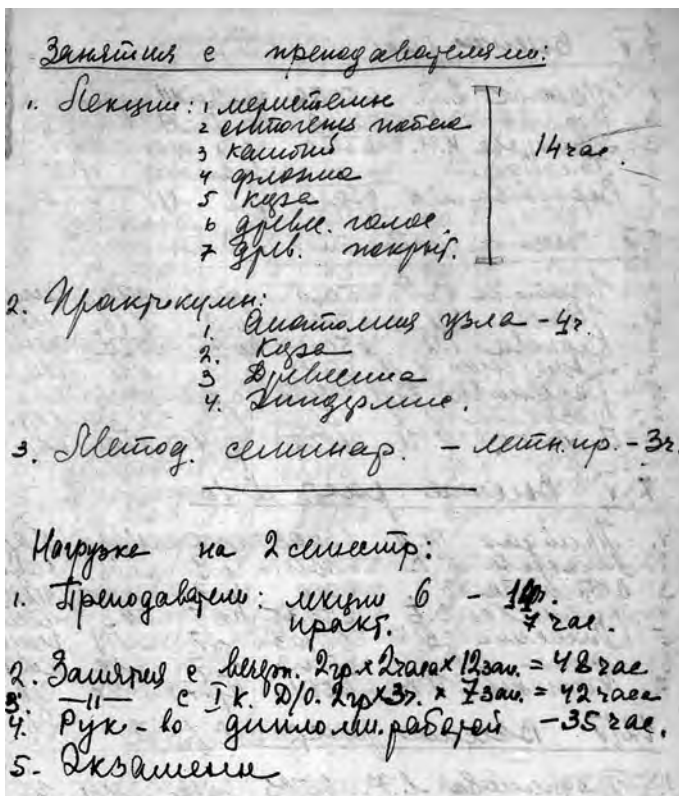 Занятия с преподавателями:
1. Лекции: 1 меристемы
2 онтогенез побега
3 камбий
4 флоэма
5 кора
6 древес. голос.
7 древ. покрыт.
14 час.
2. Практикумы:
1. Анатомия узла - 4ч.
2. Кора
3 Древесина
4. Эпидермис.
3. Метод. семинар. - летн. пр. - 3ч.
Нагрузка на 2 семестр:
1. Преподаватели: лекции 6 -
практ. 7 час.
2. Занятия с вечерн. 2гр x 2часа x 12зан. = 48 час
3. —"— с I к. Д/О. 2гр x 3ч. x 7зан. = 42 часа
4. Рук-во дипломн. работой - 35 час.
5. Экзамены